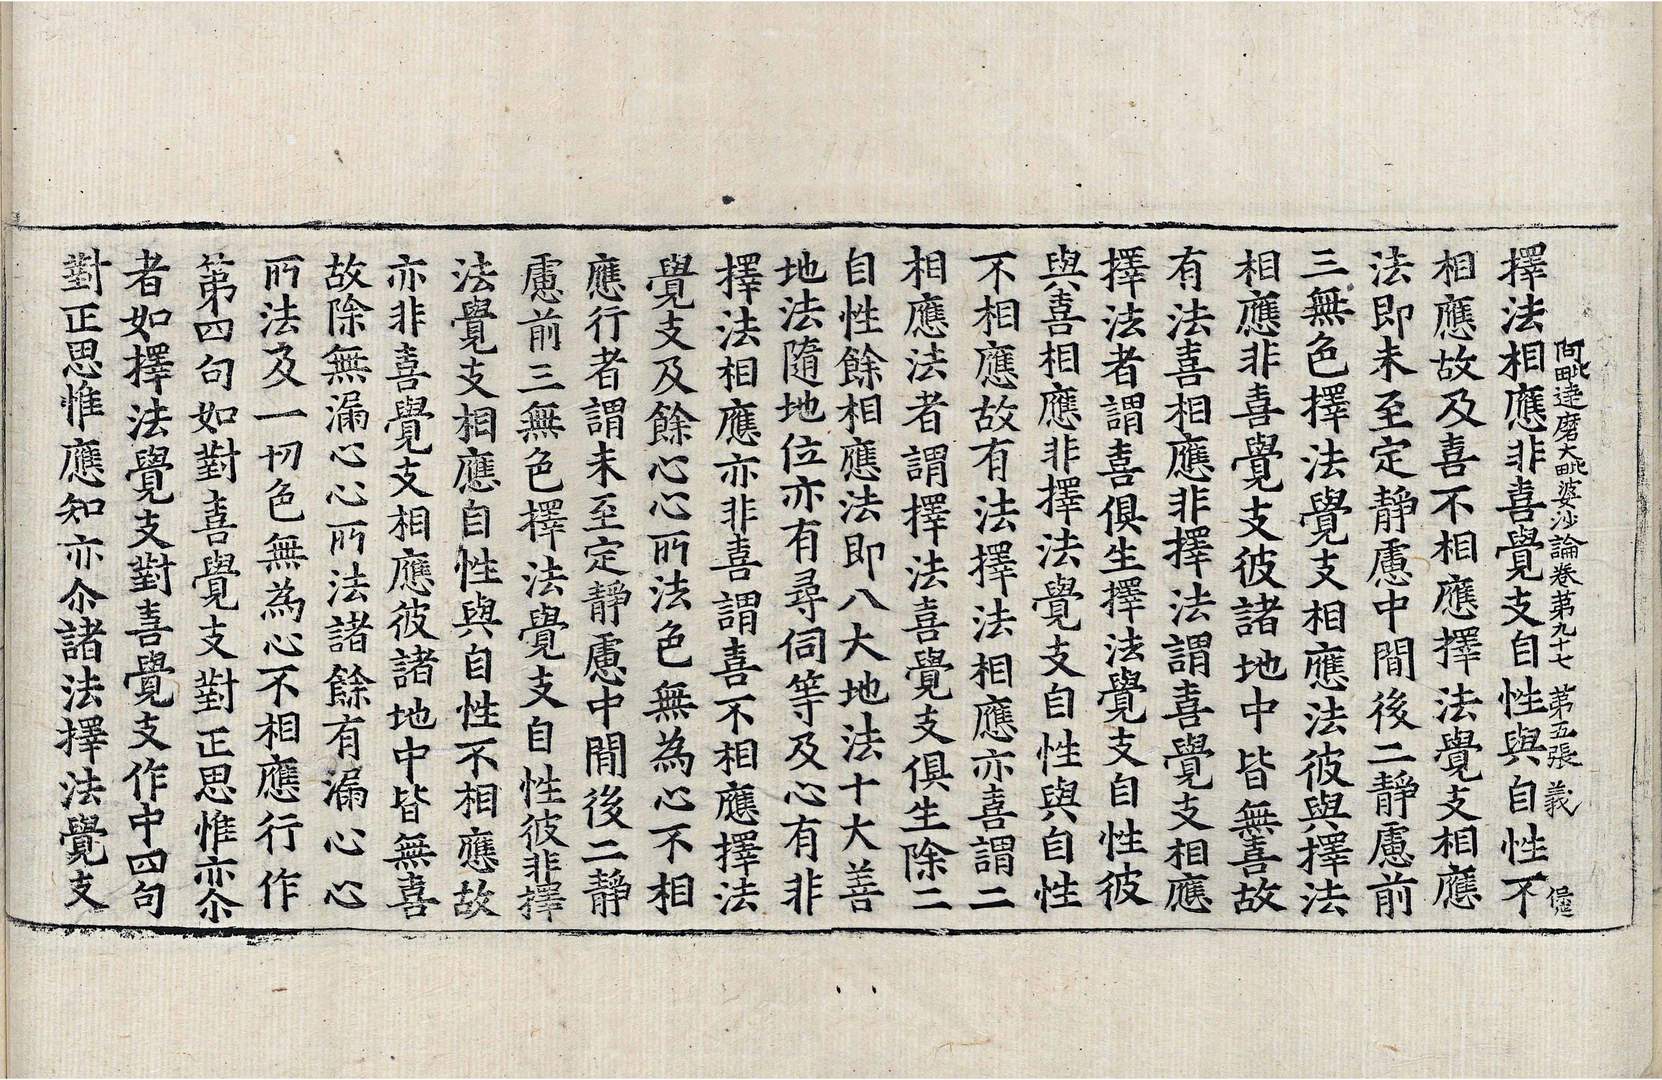 阿毗達磨大毗婆沙論卷第九十七 第五張 義
擇法相應非喜覺支自性與自性不
相應故及喜不相應擇法覺支相應
法即未至定靜慮中間後二靜慮前
三無色擇法覺支相應法彼與擇法
相應非喜覺支彼諸地中皆無喜故
有法喜相應非擇法謂喜覺支相應
擇法者謂喜俱生擇法覺支自性彼
與喜相應非擇法覺支自性與自性
不相應故有法擇法相應亦喜謂二
相應法者謂擇法喜覺支俱生除二
自性餘相應法即八大地法十大善
地法隨地位亦有尋伺等及心有非
擇法相應亦非喜謂喜不相應擇法
覺支及餘心心所法色無為心不相
應行者謂未至定靜慮中間後二靜
慮前三無色擇法覺支自性彼非擇
法覺支相應自性與自性不相應故
亦非喜覺支相應彼諸地中皆無喜
故除無漏心心所法諸餘有漏心心
所法及一切色無為心不相應行作
第四句如對喜覺支對正思惟亦尒
者如擇法覺支對喜覺支作中四句
對正思惟應知亦尒諸法擇法覺支